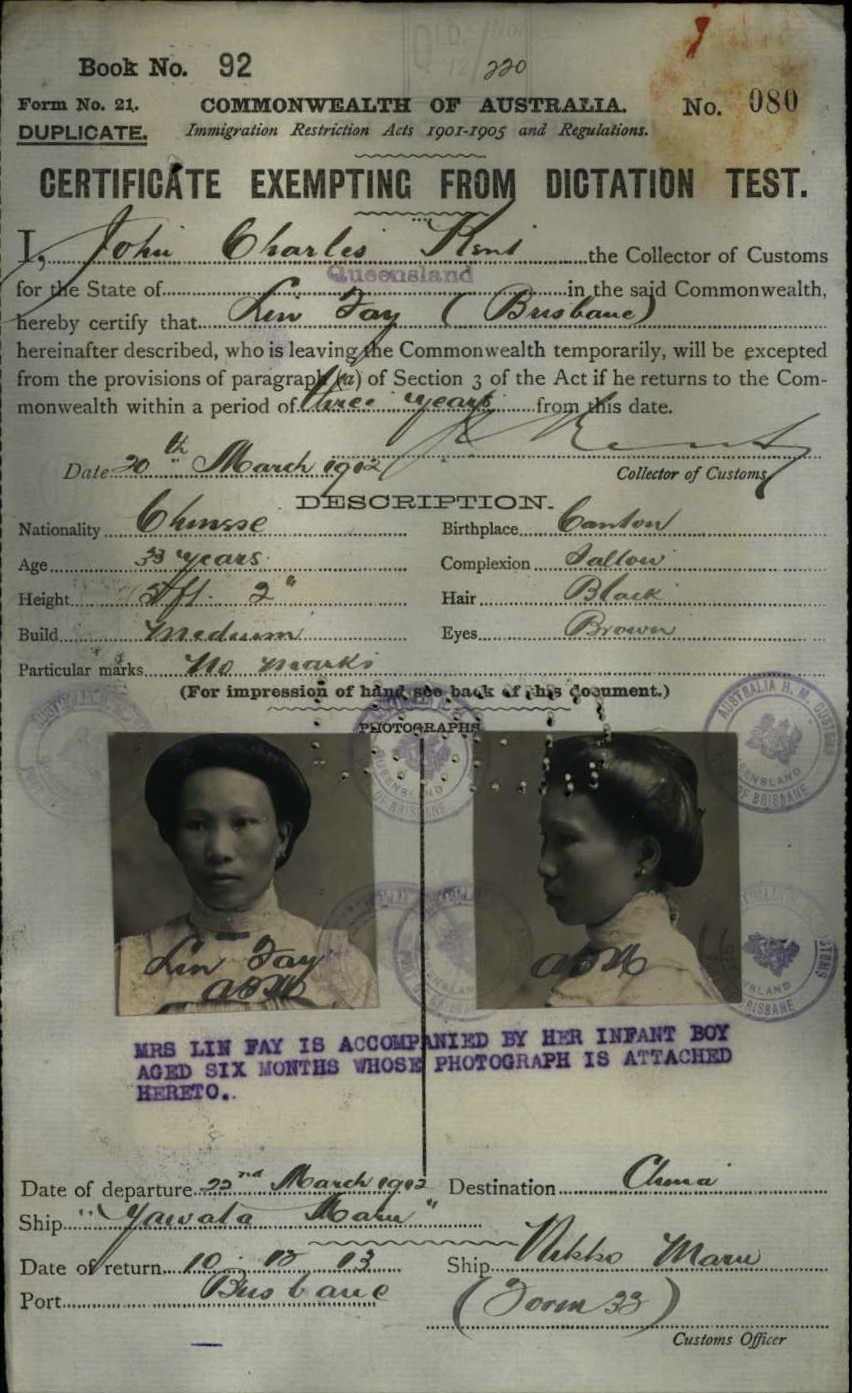 Book No. 92
220
Form No. 21.
COMMONWEALTH OF AUSTRALIA.
No. 080
DUPLICATE.
Immigration Restriction Acts 1901-1905 and Regulations.
CERTIFICATE EXEMPTING FROM DICTATION TEST.
I, John Charles Kent the Collector of Customs
for the State of Queensland in the said Commonwealth,
hereby certify that Lin Fay (Brisbane)
hereinafter described, who is leaving the Commonwealth temporarily, will be excepted
from the provisions of paragraph (a) of Section 3 of the Act if he returns to the Com-
monwealth within a period of three years from this date.
Date 20th March 1912
Collector of Customs
DESCRIPTION.
Nationality Chinese Birthplace Canton
Age 33 years Complexion Sallow
Height 5 ft. 2" Hair Black
Build Medium Eyes Brown
Particular marks No marks
(For impression of hand see back of this document.)
PHOTOGRAPHS
AUSTRALIA H. M. CUSTOMS
QUEENSLAND
BRISBANE
Lin Fay
MRS LIN FAY IS ACCOMPANIED BY HER INFANT BOY
AGED SIX MONTHS WHOSE PHOTOGRAPH IS ATTACHED
HERETO.
Date of departure 22nd March 1912 Destination China
Ship "Yawata Maru"
Date of return 10 12 13 Ship Nikko Maru
Port Brisbane (Form 33)
Customs Officer